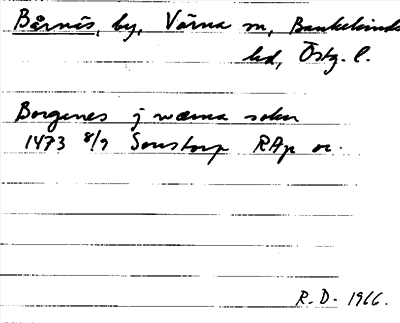 Bårnäs, by, Värna sn, Bankekinds
hd, Östg. l.
Borgenes j wærna sokn
1473 8/9 Sonstorp RAp or.
R. D. 1966.